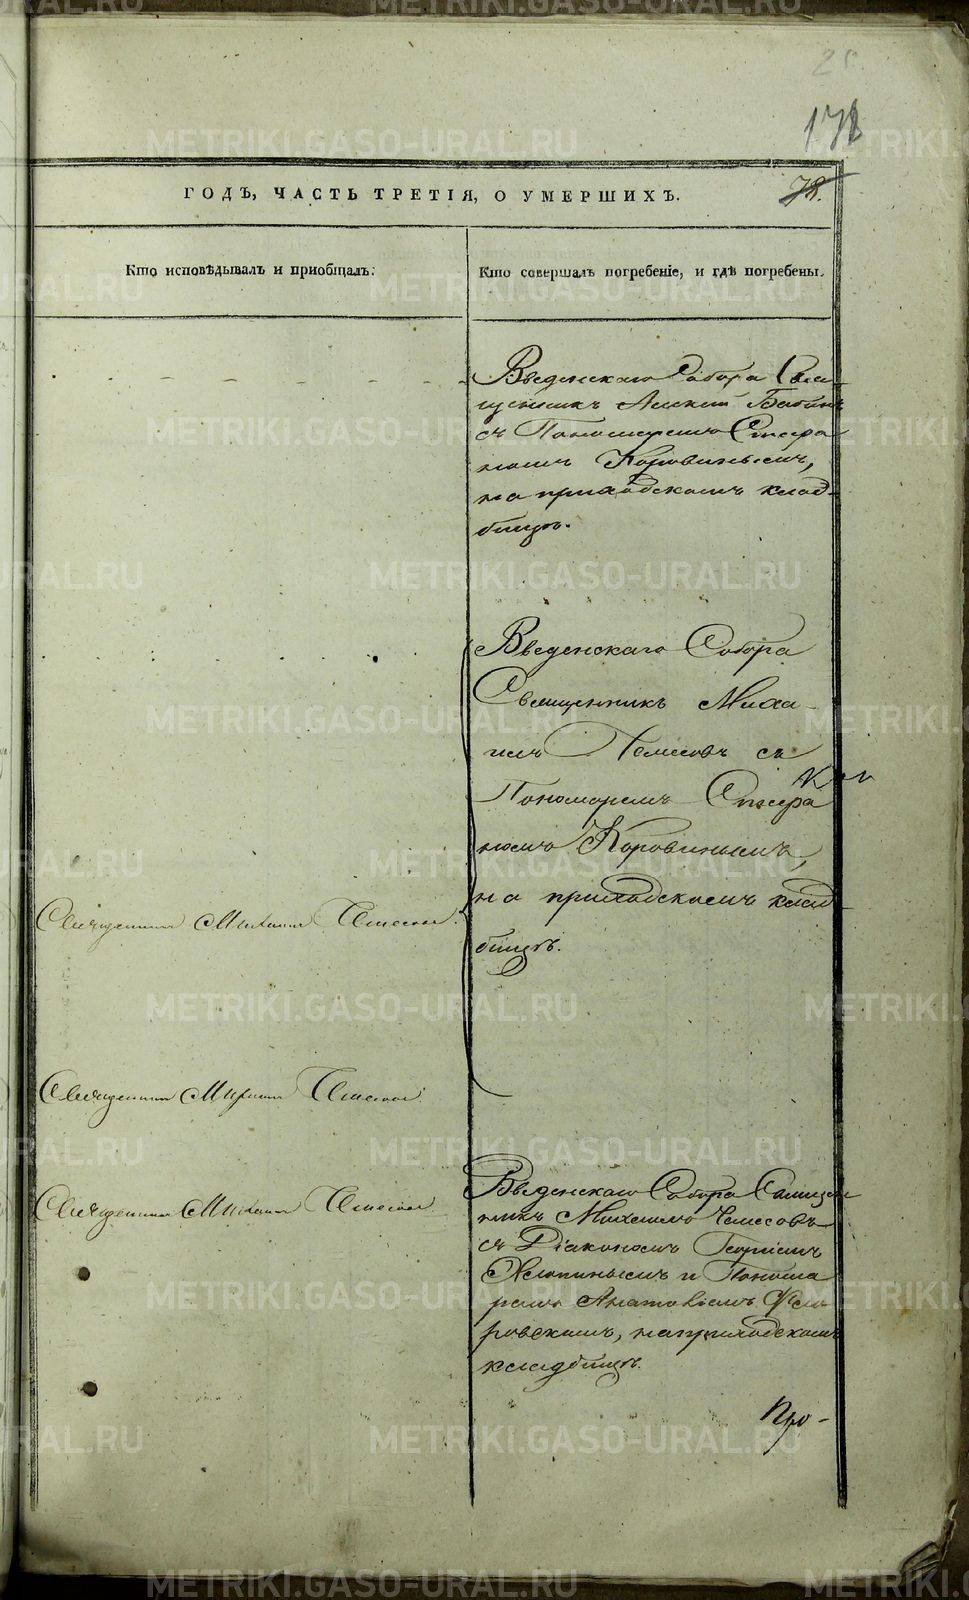 178
ГОДЪ, ЧАСТЬ ТРЕТІЯ, О УМЕРШИХЪ.
78.
Кто исповѣдывалъ и приобщалъ.
Кто совершалъ погребеніе, и гдѣ погребены.
Введенскаго Собора Свя-
щенникъ Алексій Бабинъ
съ Пономаремъ Стефа
номъ Коровинымъ,
на приходскомъ клад-
бищѣ.
Введенскаго Собора
Священникъ Миха-
илъ Чемесовъ съ
Пономаремъ Стефа
номъ Коровинымъ,
на приходскомъ клад
бищѣ.
Священникъ Михаилъ Чемесовъ.
Священникъ Михаилъ Чемесовъ.
Священникъ Михаилъ Чемесовъ
Введенскаго Собора Священ
никъ Михаилъ Чемесовъ
съ Діакономъ Георгіемъ
и Понома
ремъ
ровскимъ, на приходскомъ
кладбищѣ.
Про-
METRIKI.GASO-URAL.RU